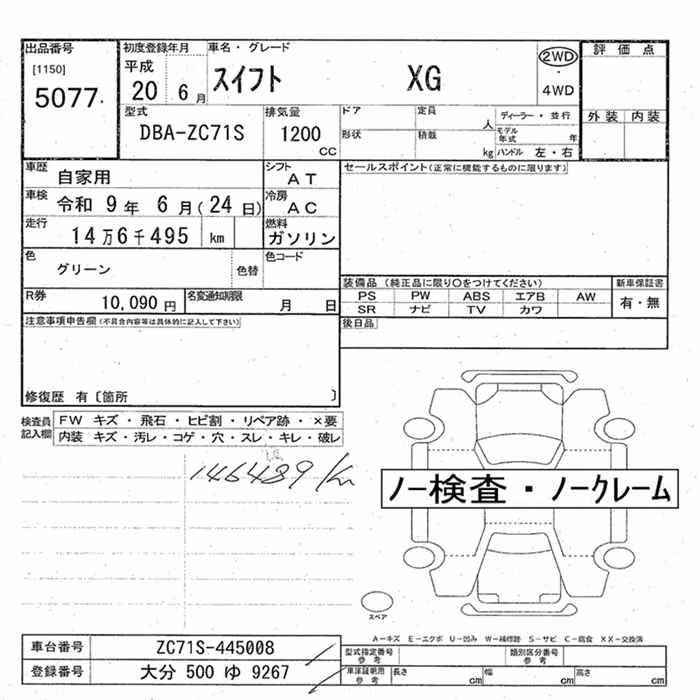 出品番号
[1150]
5077
初度登録年月
平成
20年 6月
車名・グレード
スイフト XG
2WD
4WD
評価点
外装 内装
型式
DBA-ZC71S
排気量
1200
CC
ドア
定員
人
形状
積載
kg
ディーラー・並行
モデル年式 年
ハンドル 左・右
車歴
自家用
シフト
AT
車検
令和 9年 6月(24日)
冷房
AC
走行
14万6千495 km
燃料
ガソリン
色
グリーン
色替
色コード
R券
10,090円
名変通知期限
月 日
セールスポイント(正常に機能するものに限ります)
装備品 (純正品に限り○をつけてください)
PS PW ABS エアB AW
SR ナビ TV カワ
新車保証書
有・無
後日品
注意事項申告欄(不具合内容等は具体的に記入して下さい)
修復歴 有〔箇所 〕
検査員記入欄
FW キズ・飛石・ヒビ割・リペア跡・×要
内装 キズ・汚レ・コゲ・穴・スレ・キレ・破レ
146489 Km
ノー検査・ノークレーム
スペア
A-キズ E-エクボ U-凹み W-補修跡 S-サビ C-腐食 XX-交換済
車台番号
ZC71S-445008
登録番号
大分 500 ゆ 9267
型式指定番号
参考
類別区分番号
参考
車庫証明用
参考
長さ cm
幅 cm
高さ cm